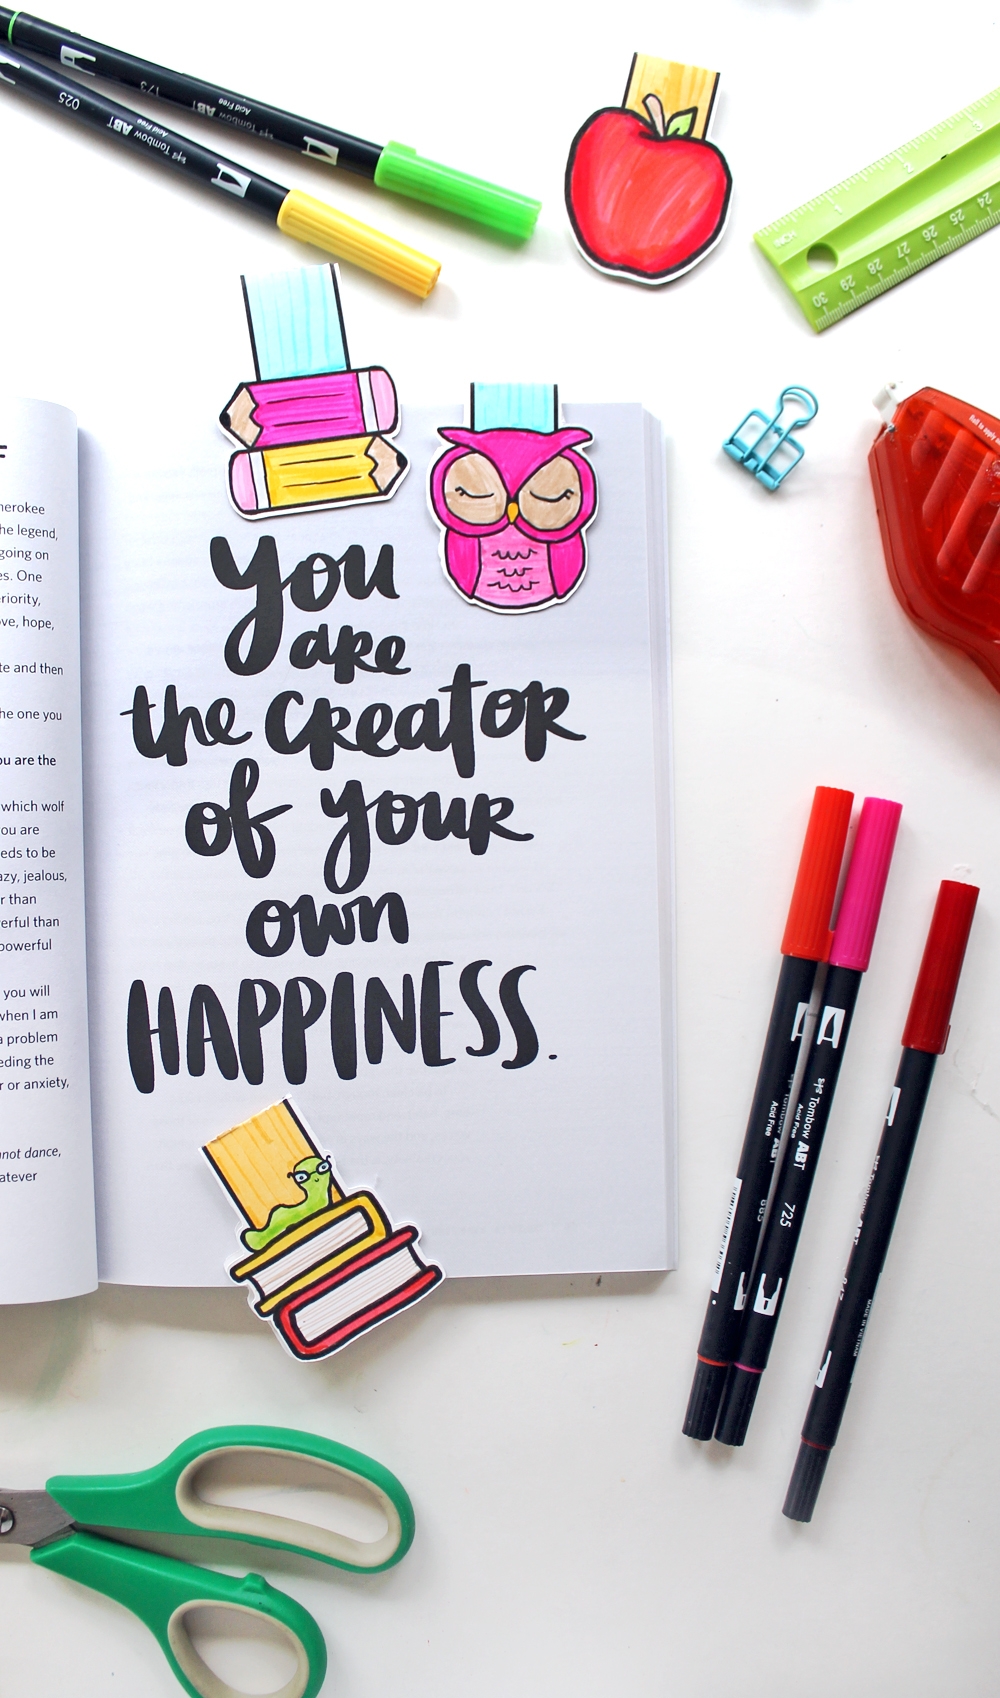 173
Tombow ABT
Acid Free
025
Tombow ABT
Acid Free
24
25
26
27
28
29
30
herokee
he legend,
going on
es. One
eriority,
ove, hope,
te and then
he one you
ou are the
which wolf
ou are
eds to be
azy, jealous,
r than
erful than
powerful
you will
when I am
a problem
eding the
r or anxiety,
not dance,
atever
you
are
the creator
of your
own
HAPPINESS.
Tombow ABT
Acid Free
885
Tombow ABT
Acid Free
725
847
MADE IN VIETNAM